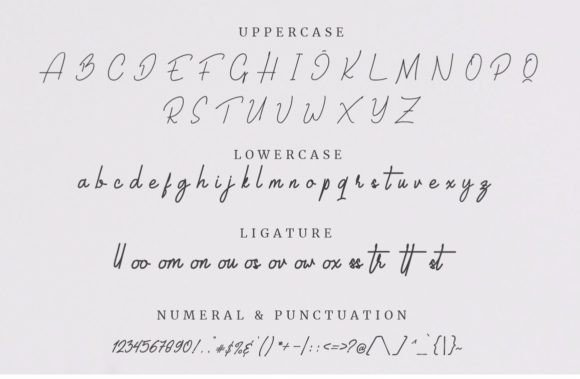 UPPERCASE
A B C D E F G H I J K L M N O P Q
R S T U V W X Y Z
LOWERCASE
a b c d e f g h i j k l m n o p q r s t u v e x y z
LIGATURE
ll oo om on ou os ov ow ox ss tr tt st
NUMERAL & PUNCTUATION
1234567890/.."#$%&'()*+-/::<=>?@[\]^_`{|}~